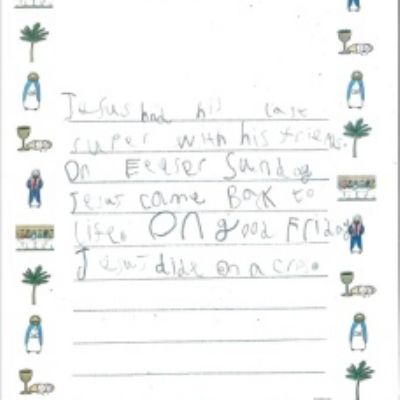 Jesus had his last
super with his friends.
On Eeaser Sunday
Jesus came Back to
life. On good Friday
Jesus dide on a cros.